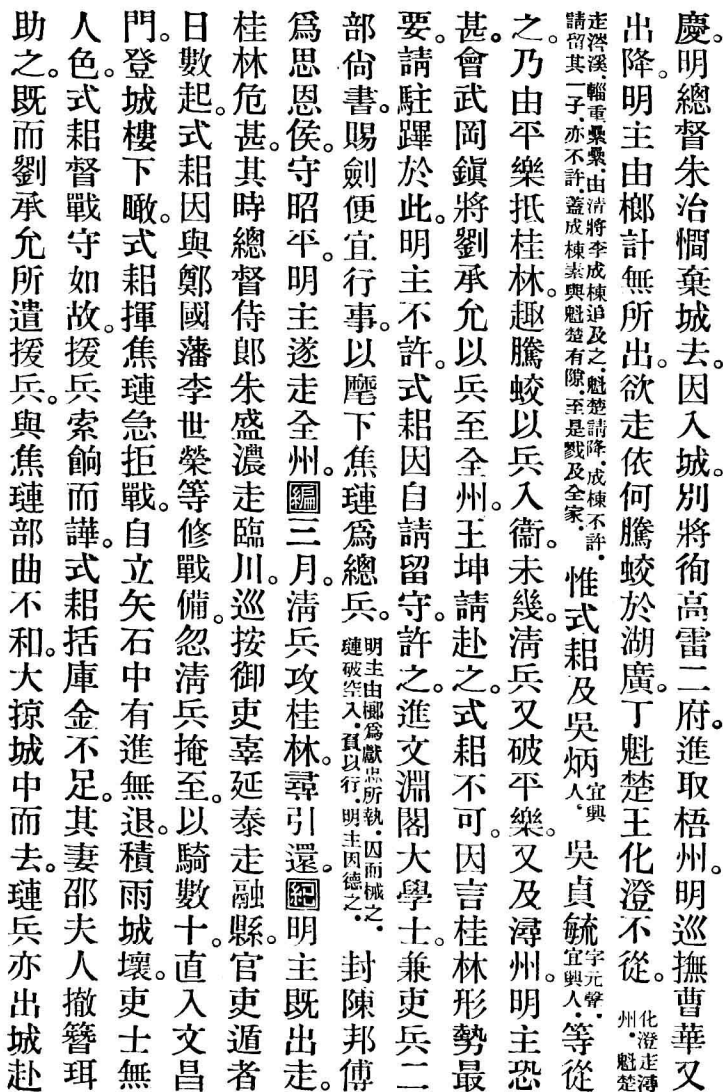 慶。明總督朱治憪棄城去。因入城。別將徇高雷二府。進取梧州。明巡撫曹華又
出降。明主由榔計無所出。欲走依何騰蛟於湖廣。丁魁楚王化澄不從。化澄走潯州。魁楚
走涔溪。輜重纍纍。由淸將李成棟追及之。魁楚請降。成棟不許。請留其一子。亦不許。蓋成棟素與魁楚有隙。至是戮及全家。惟式耜及吳炳宜興人。吳貞毓字元聲。宜興人。等從
之。乃由平樂抵桂林。趣騰蛟以兵入衞。未幾。淸兵又破平樂。又及潯州。明主恐
甚。會武岡鎭將劉承允以兵至全州。王坤請赴之。式耜不可。因言桂林形勢最
要。請駐蹕於此。明主不許。式耜因自請留守。許之。進文淵閣大學士。兼吏兵二
部尙書。賜劍便宜行事。以麾下焦璉爲總兵。明主由榔爲獻忠所執。囚而械之。璉破牢入。負以行。明主因德之。封陳邦傅
爲思恩侯。守昭平。明主遂走全州。編三月。淸兵攻桂林。尋引還。紀明主旣出走。
桂林危甚。其時總督侍郞朱盛濃走臨川。巡按御吏辜延泰走融縣。官吏遁者
日數起。式耜因與鄭國藩李世榮等修戰備。忽淸兵掩至。以騎數十。直入文昌
門。登城樓下瞰。式耜揮焦璉急拒戰。自立矢石中有進無退。積雨城壞。吏士無
人色。式耜督戰守如故。援兵索餉而譁。式耜括庫金不足。其妻邵夫人撤簪珥
助之。旣而劉承允所遣援兵。與焦璉部曲不和。大掠城中而去。璉兵亦出城赴